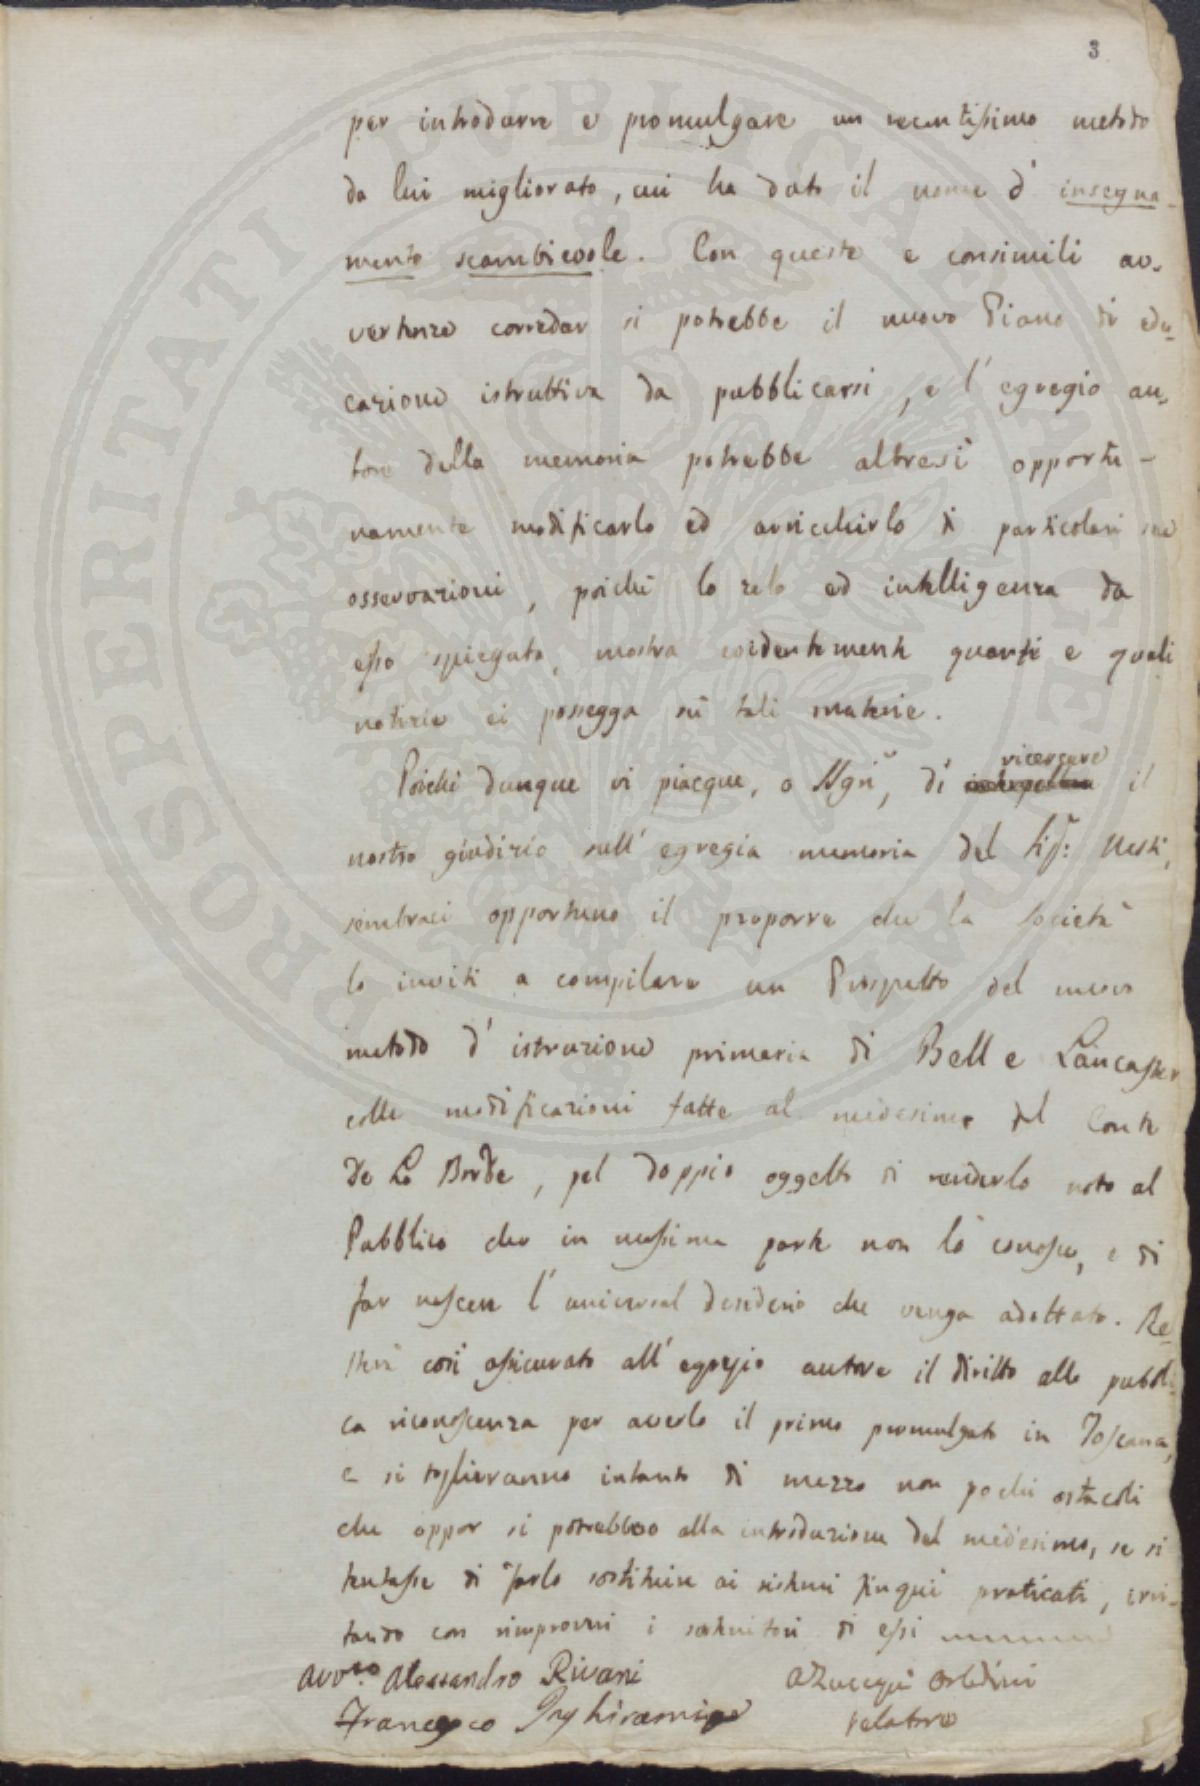 3
per introdurre e promulgare un recentissimo metodo
da lui migliorato, cui ha dato il nome d'insegna-
mento scambievole. Con queste e consimili av-
vertenze corredar si potrebbe il nuovo Piano di edu-
cazione istruttiva da pubblicarsi, e l'egregio au-
tore della memoria potrebbe altresì opportu-
namente modificarlo ed arricchirlo di particolari sue
osservazioni, poichè lo zelo ed intelligenza da
esso spiegata, mostra evidentemente quante e quali
notizie ei possegga su tali materie.
Poichè dunque vi piacque, o Sign.i, di ricercare il
nostro giudizio sull'egregia memoria del Sig.r Nesti,
sembraci opportuno il proporre che la Società
lo inviti a compilare un Prospetto del nuovo
metodo d'istruzione primaria di Bell e Lancaster
colle modificazioni fatte al medesimo dal Conte
De La Borde, pel doppio oggetto di renderlo noto al
Pubblico che in massima parte non lo conosce, e di
far nascere l'universal desiderio che venga adottato. Re-
sterà così assicurato all'egregio autore il diritto alla pubbli-
ca riconoscenza per averlo il primo promulgato in Toscana,
e si toglieranno intanto di mezzo non pochi ostacoli
che oppor si potrebbero alla introduzione del medesimo, se si
tentasse di farlo sostituire ai sistemi finqui praticati, irri-
tando con rimproveri i sostenitori di essi
Avv.to Alessandro Rivani
Francesco Inghirami
relatore
PROSPERITATI PUBLICAE AUGENDAE